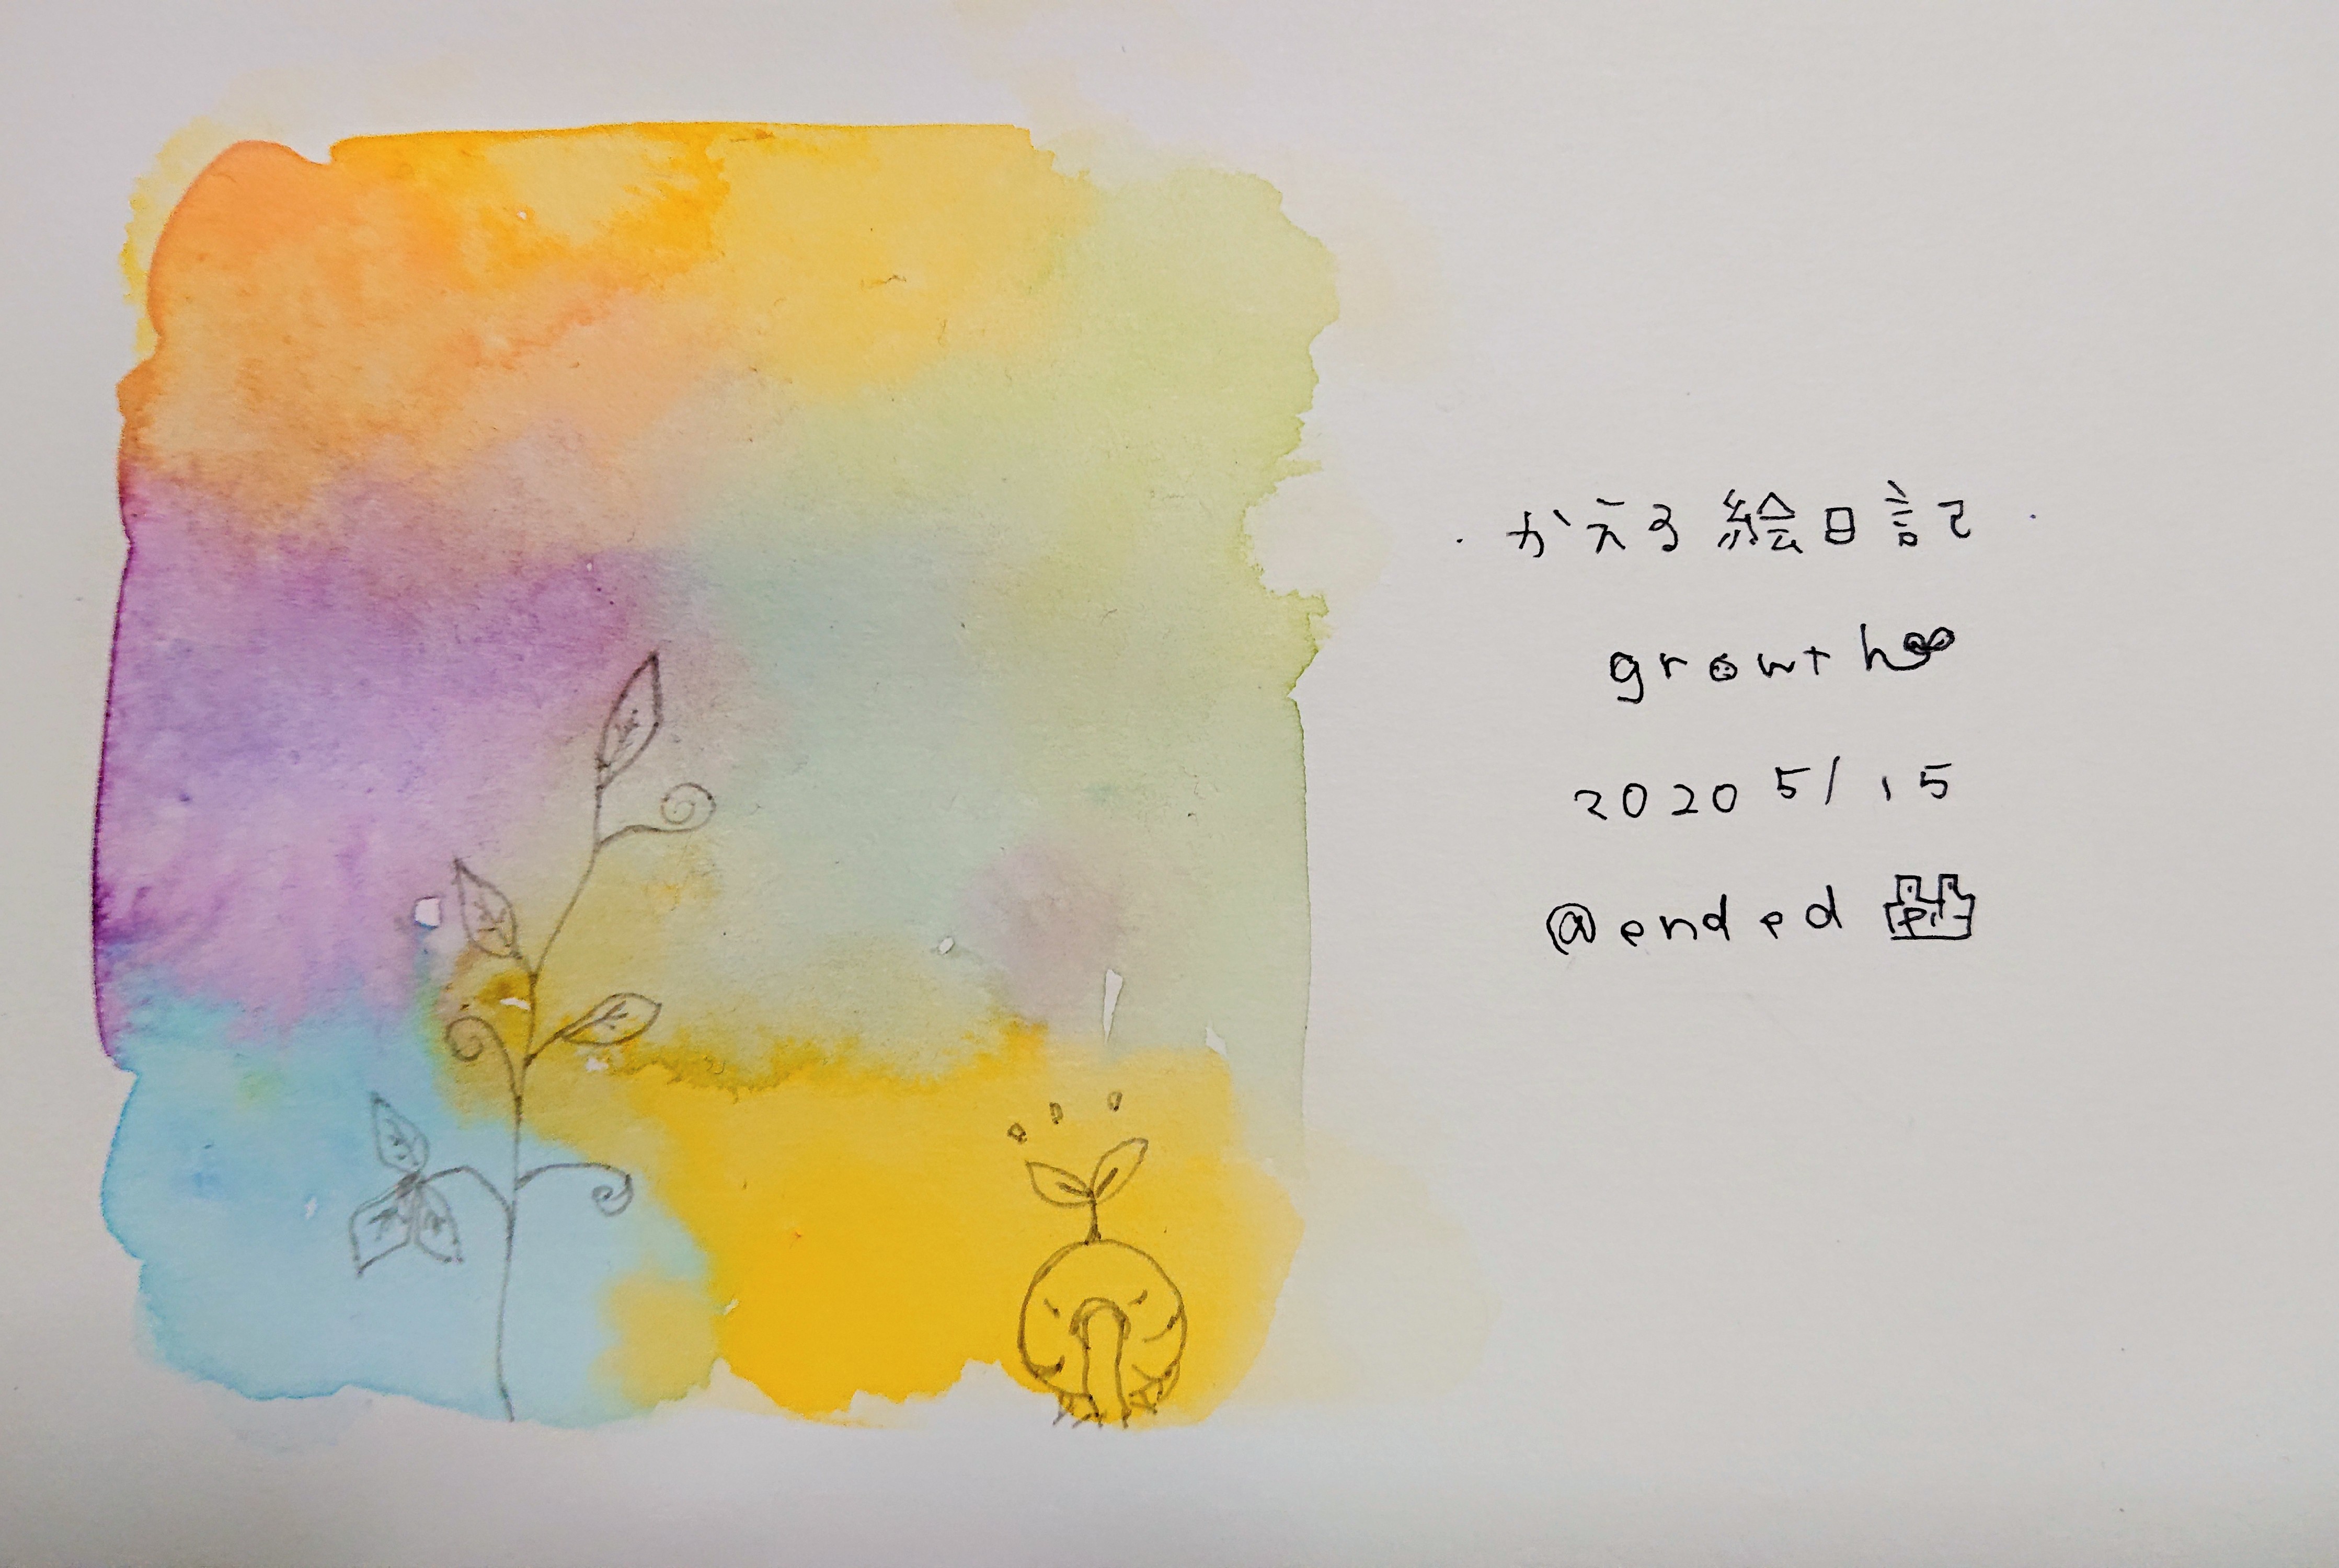 ・かえる絵日記・
growth
2020 5/15
@ended